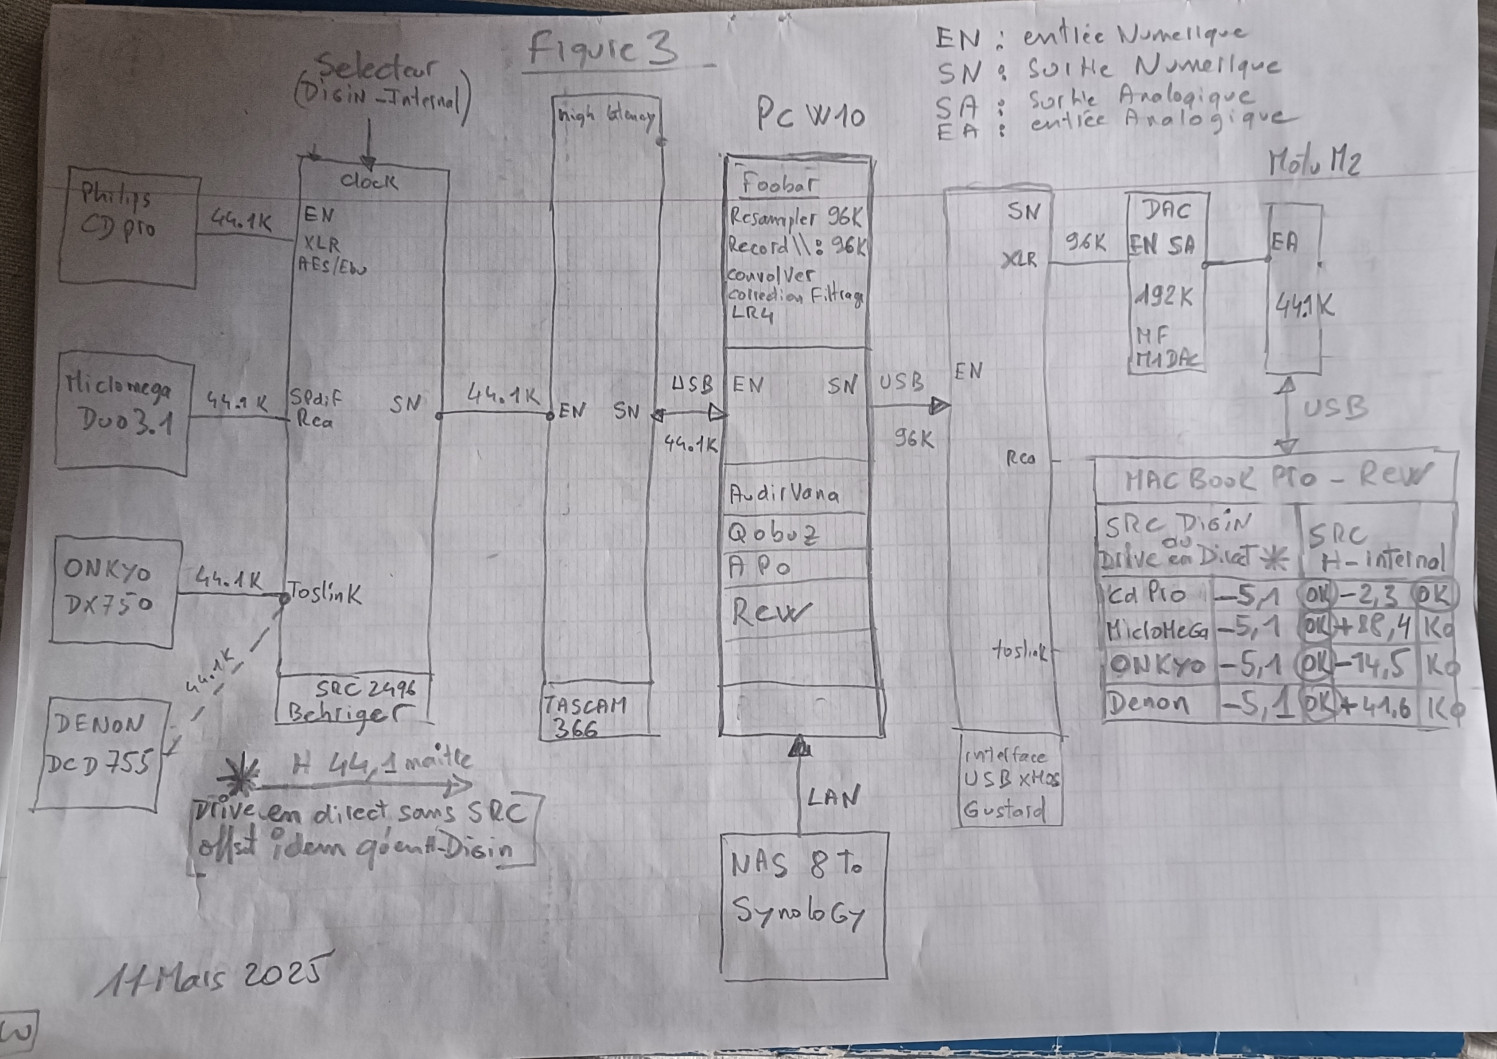 Figure 3
EN : entrée Numerique
SN : Sortie Numerique
SA : Sortie Analogique
EA : entrée Analogique
Selecteur
(Digin-Internal)
Philips
CD pro
44.1K
Miclomega
Duo 3.1
44.1K
ONKYO
DX750
44.1K
DENON
DCD755
44.1K
clock
EN
XLR
AES/
SPdiF
Rca
SN
Toslink
SRC 2496
Behriger
44.1K
high latency
EN SN
TASCAM
366
USB
44.1K
Pc W10
Foobar
Resampler 96K
Record \\: 96K
convolver
correction Filtrage
LR4
EN SN
Audirvana
Qobuz
APO
Rew
USB
96K
LAN
NAS 8 To
SynoloGy
SN
XLR
EN
Rca
toslink
interface
USB xMos
Gustard
96K
DAC
EN SA
192K
MF
M1DAC
Motu M2
EA
44.1K
USB
MACBOOK Pro - Rew
SRC Digin
ou
Drive en Direct *
SRC
H-internal
Cd Pro -5,1 OK -2,3 OK
MicloMeGa -5,1 OK +88,4 Ko
ONKyo -5,1 OK -14,5 Ko
Denon -5,1 OK +41,6 Ko
* H 44,1 maitre
Drive en direct sans SRC
offset idem qu'en H-Digin
11 Mars 2025
3